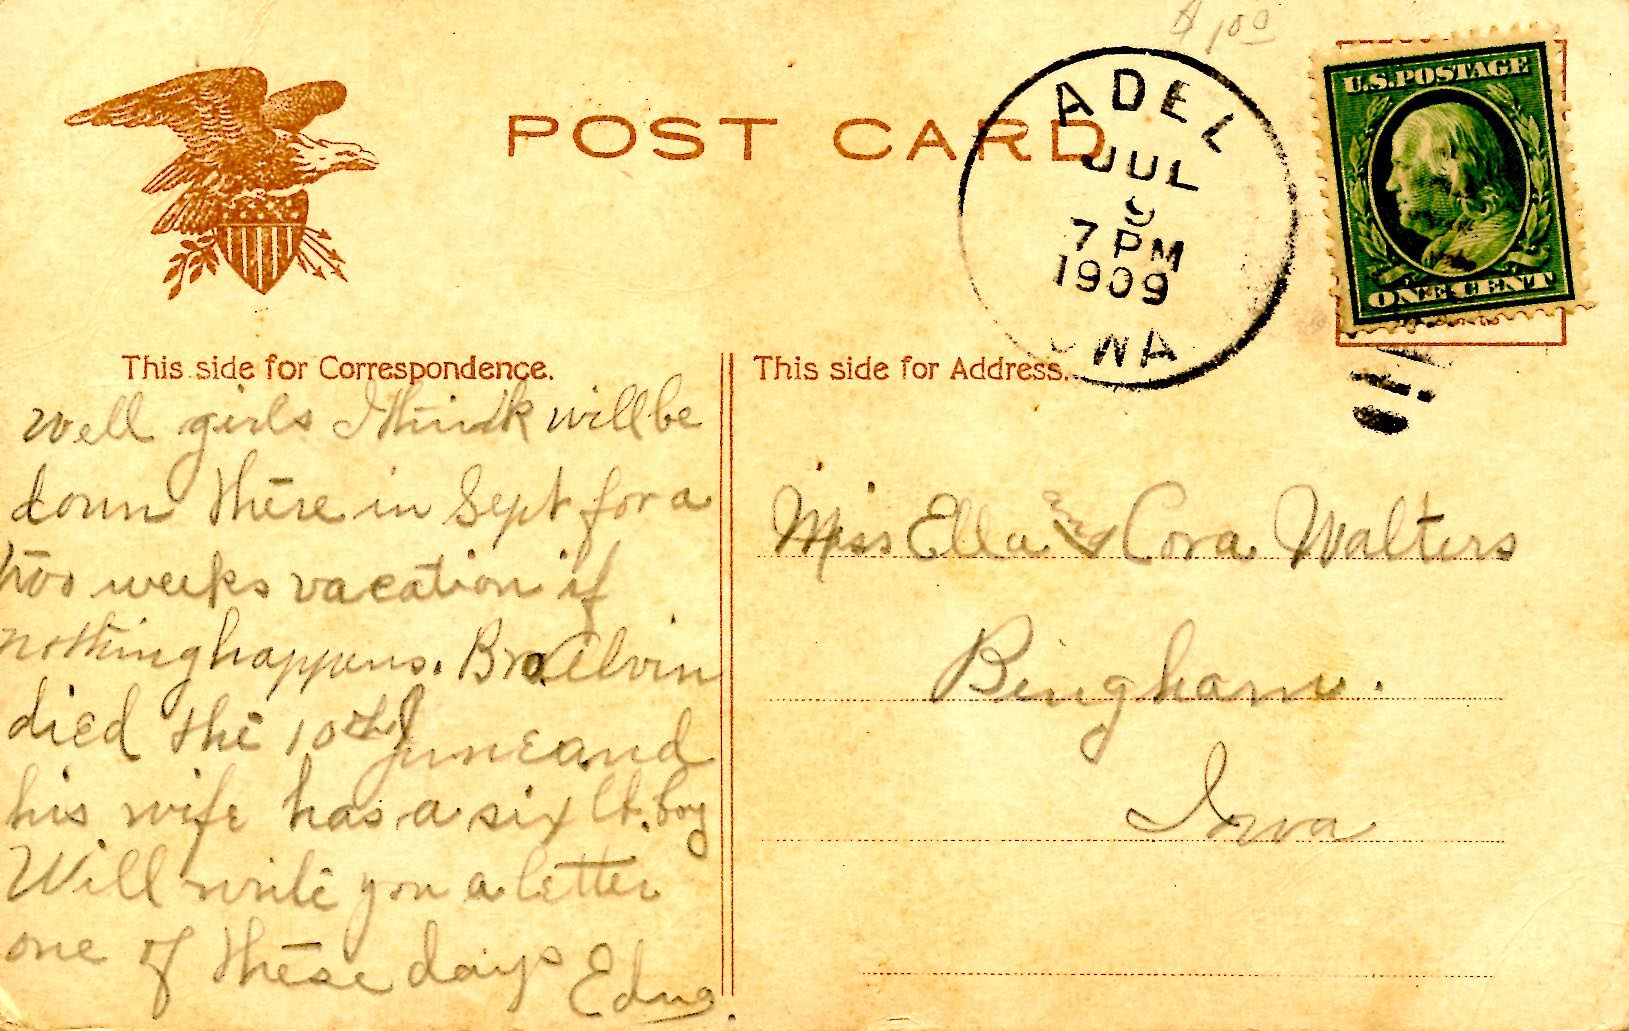 $1.00
POST CARD
ADEL
JUL
9
7 PM
1909
OWA
U.S. POSTAGE
ONE CENT
This side for Correspondence.
This side for Address.
Well girls I think will be
down there in Sept for a
two weeks vacation if
nothing happens. Bro. Alvin
died the 10th June and
his wife has a six lb. boy
Will write you a letter
one of these days Edna.
Miss Ella and Cora Walters
Bingham.
Iowa